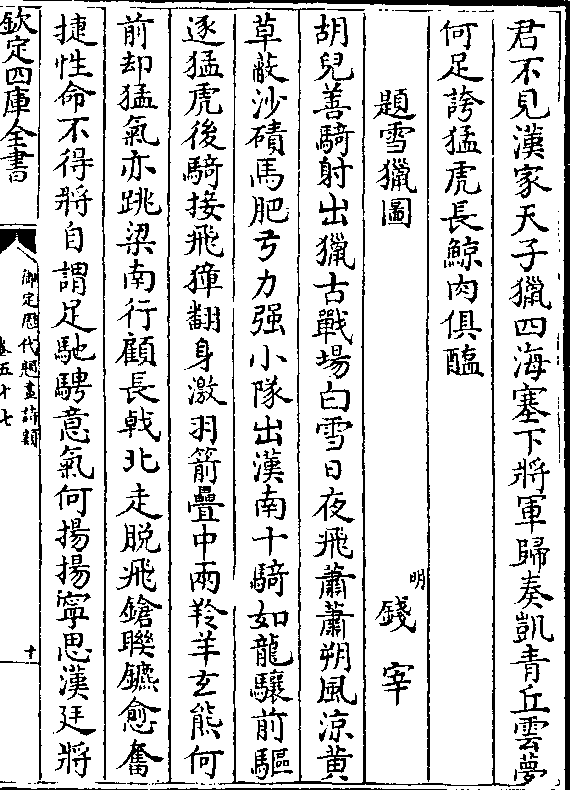 君不見漢家天子獵四海塞下將軍歸奏凱青丘雲夢
何足誇猛虎長鯨肉俱醢
題雪獵圖
明 錢宰
胡兒善騎射出獵古戰場白雪日夜飛蕭蕭朔風涼黄
草蔽沙磧馬肥弓力强小隊出漢南十騎如龍驤前驅
逐猛虎後騎接飛獐翻身激羽箭疊中兩羚羊玄熊何
前却猛氣亦跳梁南行顧長戟北走脱飛鎗聯鑣愈奮
捷性命不得將自謂足馳騁意氣何揚揚寧思漢廷將
欽定四庫全書
御定歴代題畫詩類
卷五十七
十